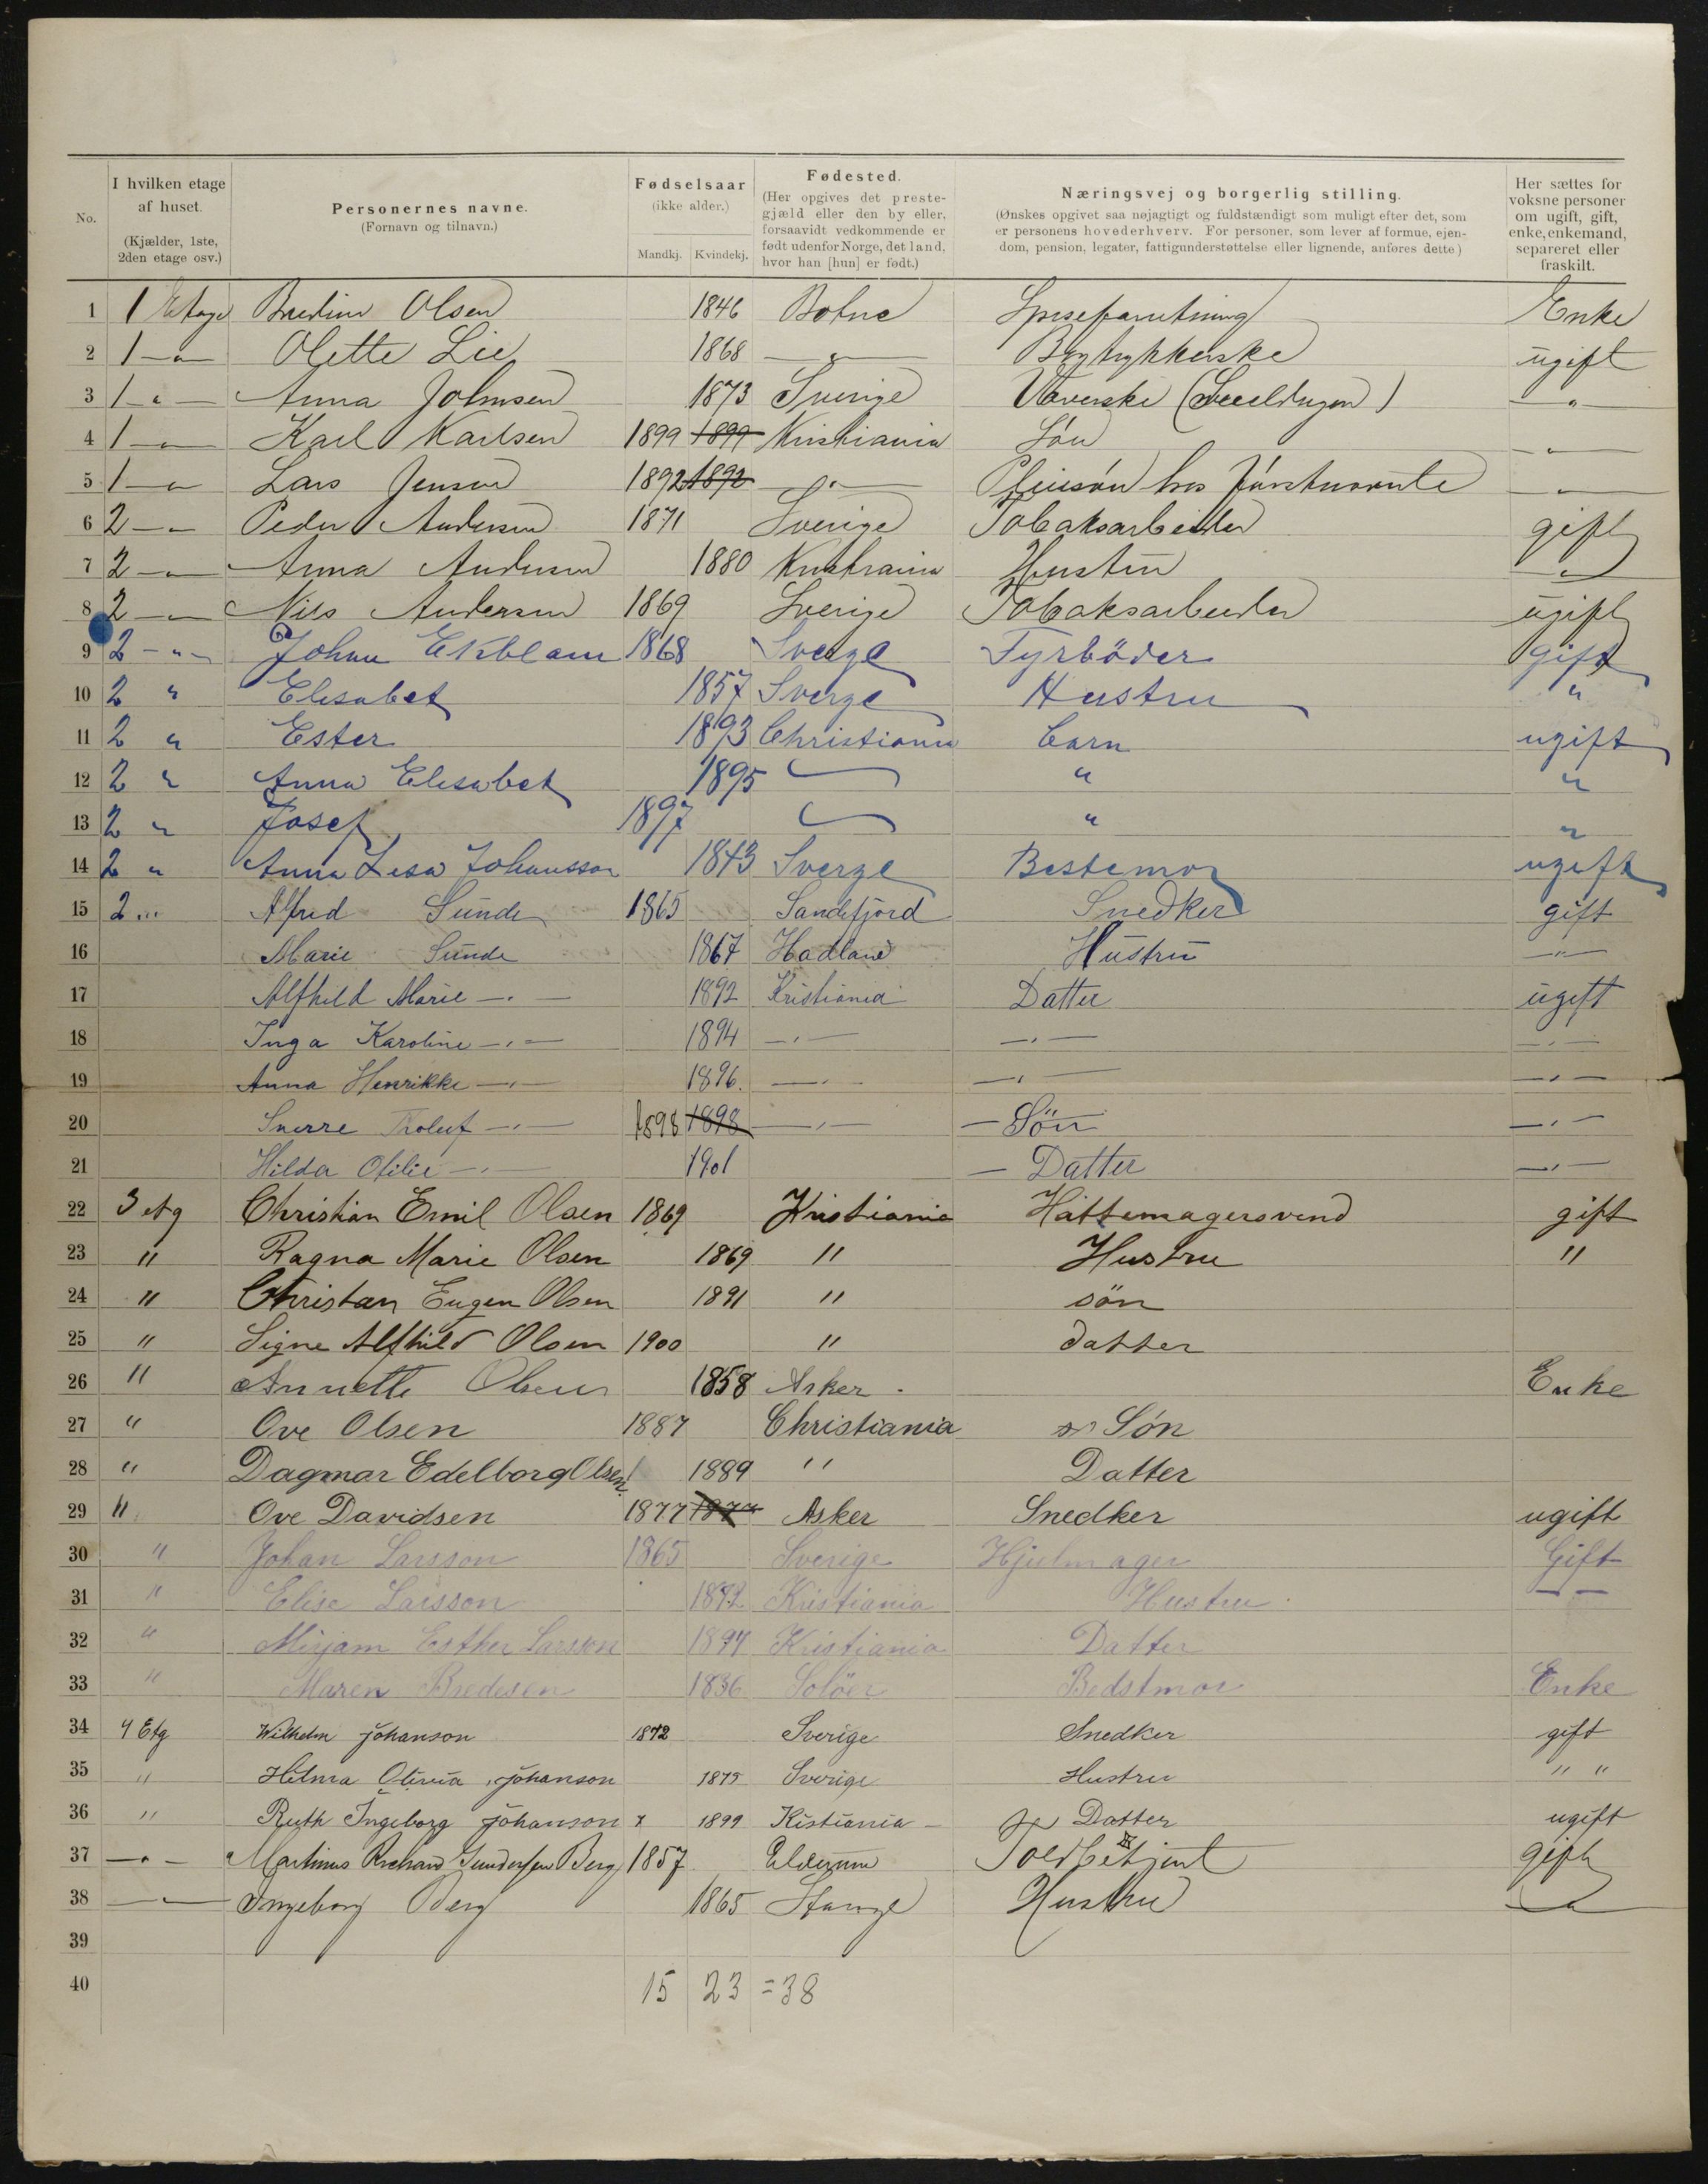 No.
I hvilken etage af huset.
(Kjælder, 1ste, 2den etage osv.)
Personernes navne.
(Fornavn og tilnavn.)
Fødselsaar
(ikke alder.)
Mandkj. Kvindekj.
Fødested.
(Her opgives det prestegjæld eller den by eller, forsaavidt vedkommende er født udenfor Norge, det land, hvor han [hun] er født.)
Næringsvej og borgerlig stilling.
(Ønskes opgivet saa nøjagtigt og fuldstændigt som muligt efter det, som er personens hovederhverv. For personer, som lever af formue, ejendom, pension, legater, fattigunderstøttelse eller lignende, anføres dette)
Her sættes for voksne personer om ugift, gift, enke, enkemand, separeret eller fraskilt.
1 1 Etage Olsen 1846 Botne Enke
2 1 —„— Olette Lie 1868 —„— ugift
3 1 —„— Anna Johnsen 1873 Sverige Væverske —„—
4 1 —„— Karl Karlsen 1899 1899 Kristiania Søn —„—
5 1 —„— Lars Jensen 1892 1892 —„— Pleiesøn hos —„—
6 2 —„— Peder Andersen 1871 Sverige Tobaksarbeider gift
7 2 —„— Anna Andersen 1880 Kristiania Hustru —„—
8 2 —„— Nils Andersen 1869 Sverige Tobaksarbeider ugift
9 2 —„— Johan Ekblam 1868 Sverge Fyrböder gift
10 2 „ Elisabet 1857 Sverge Hustru „
11 2 „ Ester 1893 Christiania barn ugift
12 2 „ Anna Elisabet 1895 „ „
13 2 „ Josef 1897 „ „
14 2 „ Anna Lisa Johansson 1843 Sverge Bestemor ugift
15 2 „ Alfred Sunde 1865 Sandefjord Snedker gift
16 Marie Sunde 1867 Hadland Hustru —„—
17 Alfhild Marie —„— 1892 Kristiania Datter ugift
18 Inga Karoline —„— 1894 —„— —„— —„—
19 Anna Henrikke —„— 1896. —„— —„— —„—
20 Snorre —„— 1898 1898 —„— — Sön —„—
21 Hilda Otilie —„— 1901 — Datter —„—
22 3 etg Christian Emil Olsen 1869 Kristiania Hattemagersvend gift
23 " Ragna Marie Olsen 1869 " Hustru "
24 " Christan Eugen Olsen 1891 " sön
25 " Signe Alfhild Olsen 1900 " datter
26 " Annette Olsen 1858 Asker. Enke
27 " Ove Olsen 1887 Christiania Søn
28 " Dagmar Edelborg Olsen. 1889 " Datter
29 " Ove Davidsen 1877 1877 Asker Snedker ugift
30 " Johan Larsson 1865 Sverige Hjulmager Gift
31 " Elise Larsson Kristiania Hustru. — —
32 " Mirjam Esther Larsson Kristiania Datter
33 " Maren Bredesen 1836 Solöer Bedstmor Enke
34 4 Etg Wilhelm Johanson 1872 Sverige Snedker gift
35 " Hilma Olivia Johanson 1875 Sverige Hustru " "
36 " Ruth Ingeborg Johanson x 1899 Kistiania — Datter ugift
37 —„— Martinus Richard Gundersen Berg 1857 Elverum Toldbetjent gift
38 —„— Ingeborg Berg 1865 Stange Hustru —„—
39
40 15 23 = 38